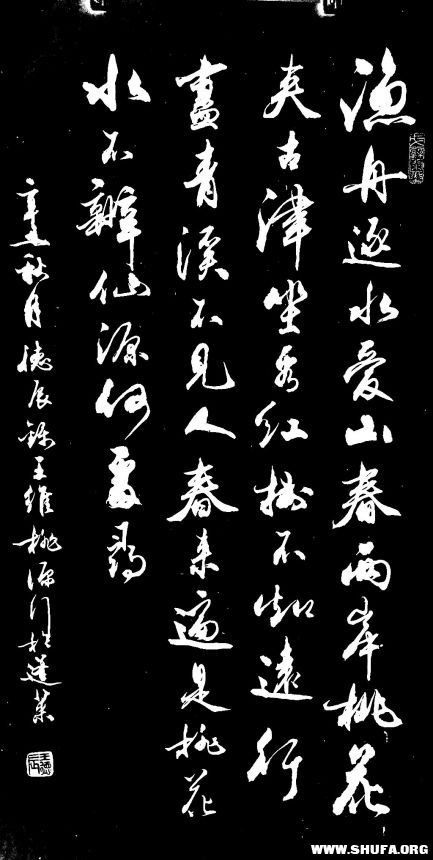 漁舟逐水愛山春兩岸桃花
夾古津坐看紅樹不知遠行
盡青溪不見人春來遍是桃花
水不辨仙源何處尋
秋月德辰錄王維桃源行於蓬萊
WWW.SHUFA.ORG